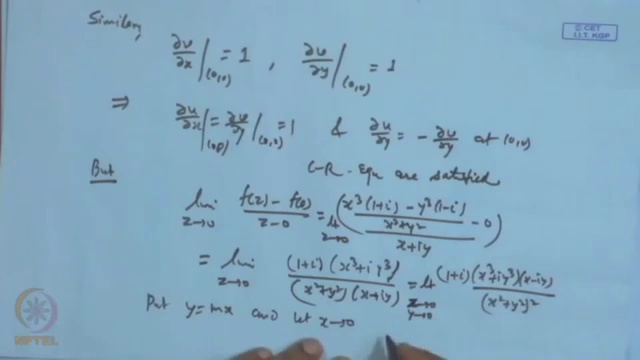 © CET
I.I.T. KGP
Similarly,
∂v/∂x |(0,0) = 1 , ∂v/∂y |(0,0) = 1
⇒ ∂u/∂x |(0,0) = ∂v/∂y |(0,0) = 1 & ∂u/∂y = - ∂v/∂y at (0,0)
C-R- Equ. are satisfied
But
lim z→0 (f(z) - f(0))/(z-0) = lt z→0 ((x³(1+i) - y³(1-i))/(x²+y²) - 0)/(x+iy)
= lim z→0 ((1+i)(x³+iy³))/((x²+y²)(x+iy)) = lt x→0 y→0 ((1+i)(x³+iy³)(x-iy))/(x²+y²)²
Put y=mx and let x→0
NPTEL